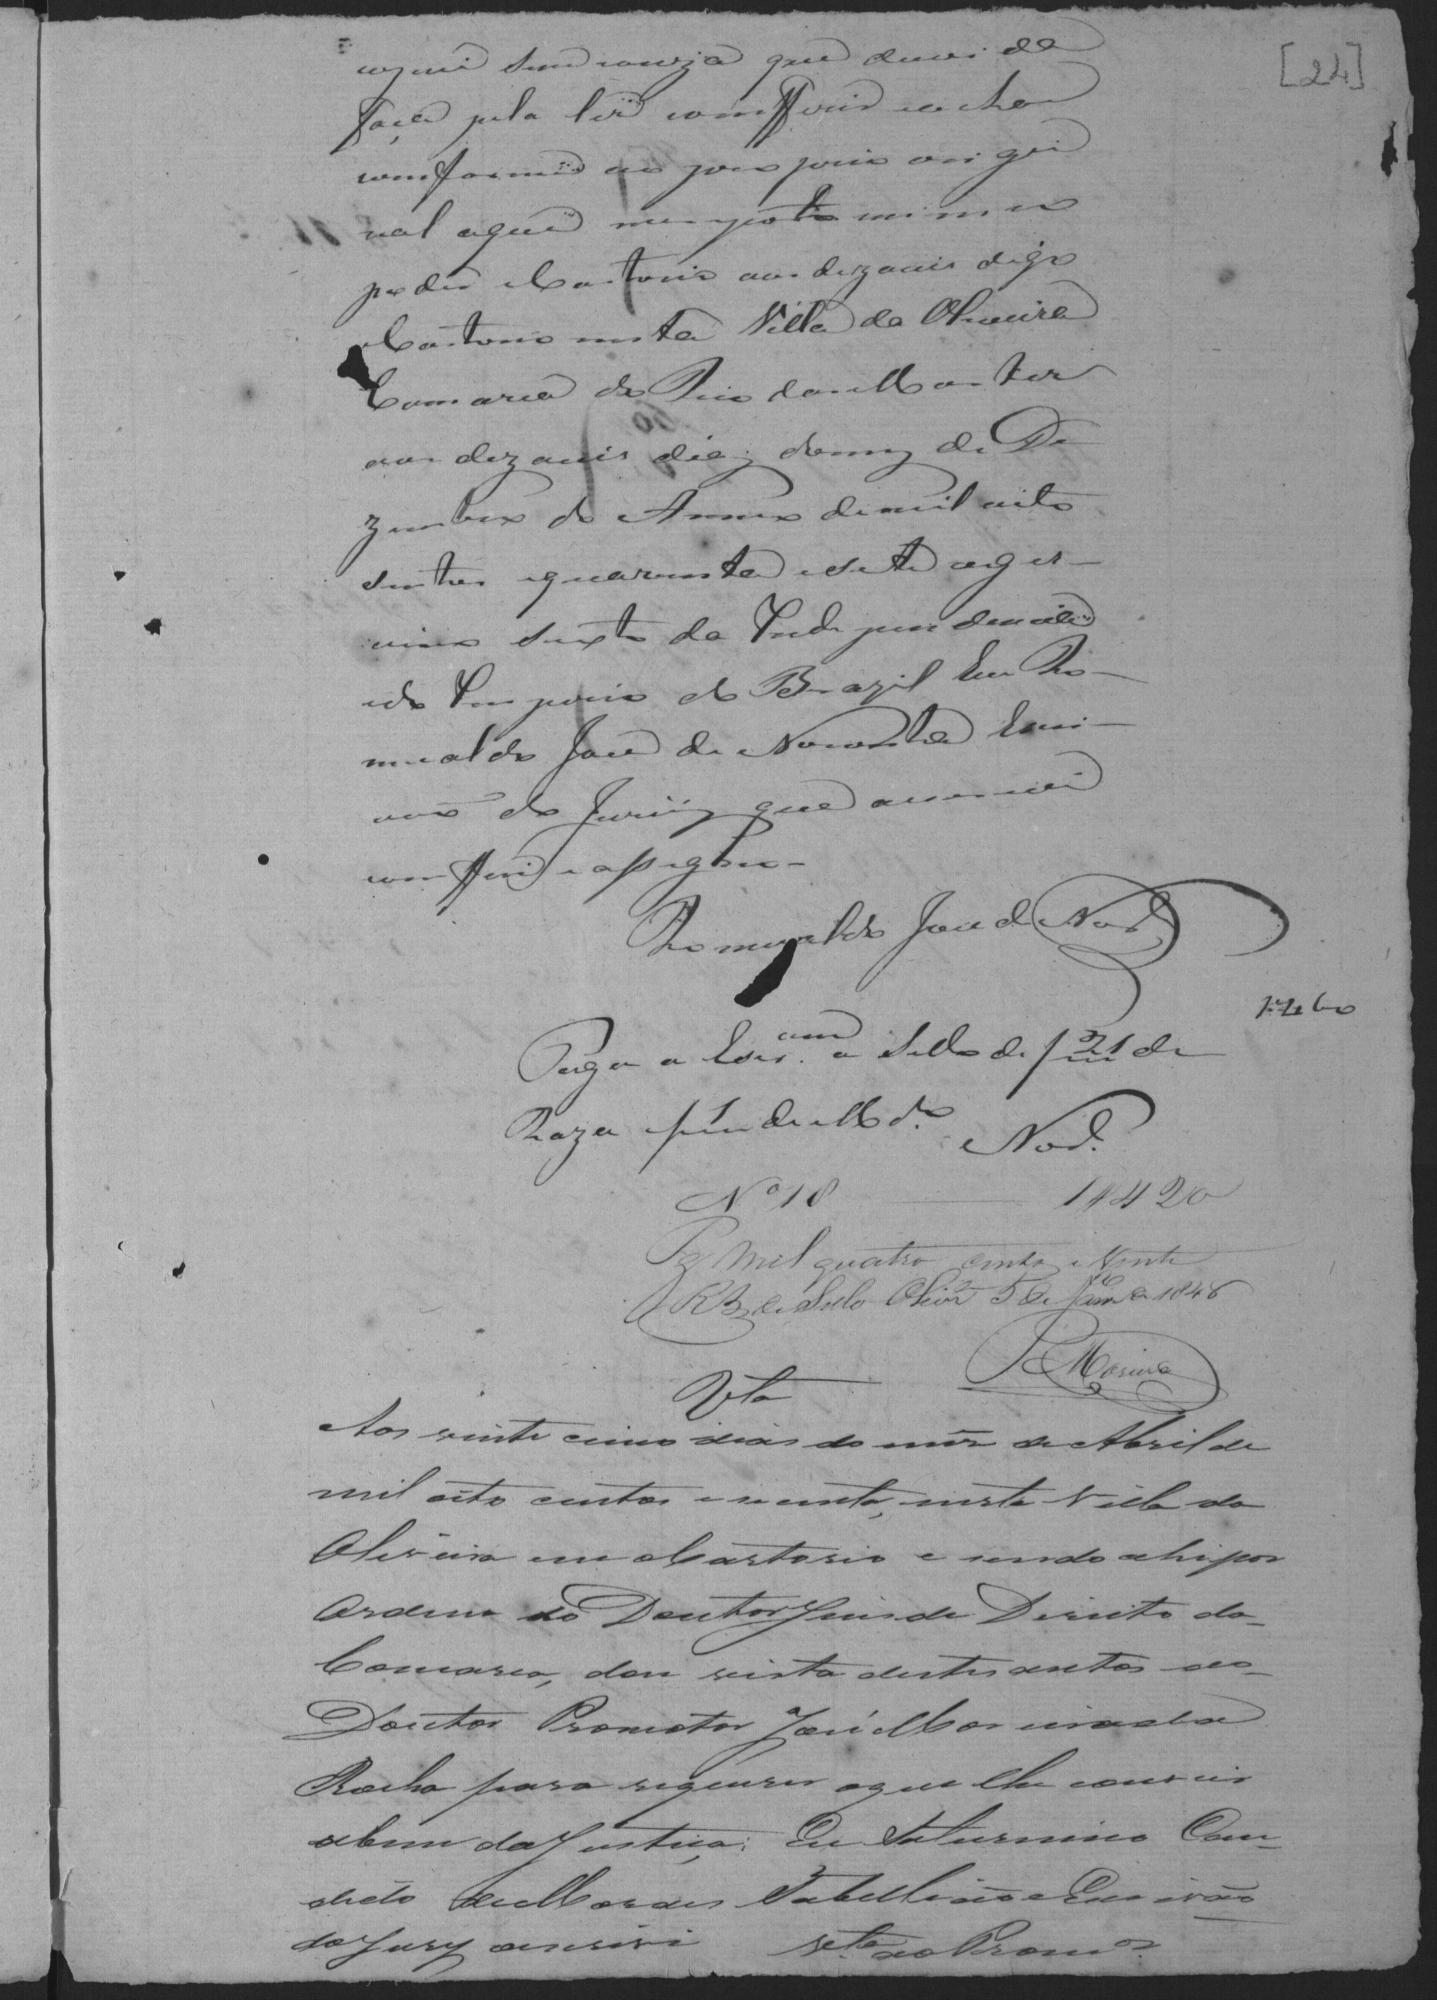 [24]
que
faça pela lei comfferi e achei
comforme ao proprio origi
nal aque me reporto in meo
poder e Cartorio aos dezaceis digo
Cartorio nesta Villa da Oliveira
Comarca do Rio das Mortes
aos dezaceis dias do mez de De
zembro do Anno de mil oito
sentos e quarenta e sete viges
simo sexto da Independencia
e do Imperio do Brazil Eu Ro
mualdo José de Noronha Escri
vaõ do Jurÿ que escrevi
comfferi e assigno
Romualdo José de Nor.ª
Paga a Escr.am o Sello de
Raza
Nor.ª
Nº 18 1$420
Pg mil quatro centos e vinte
Rs de Sello Olivrª 5 de 1848
Moreira
Vta
Aos vinte cinco dias do mez de Abril de
mil oito centos e secenta, nesta Villa da
Oliveira em o Cartorio e sendo ahi por
Ordem do Doutor Juis de Direito da
Comarca, dou vista destes autos ao
Doutor Promotor José Moreira da
Rocha para requerer o que lhe convier
a bem da Justiça: Eu Saturnino Can
dido de Moraes Tabelliaõ e Escrivaõ
do Jury o escrevi Vta ao Promor